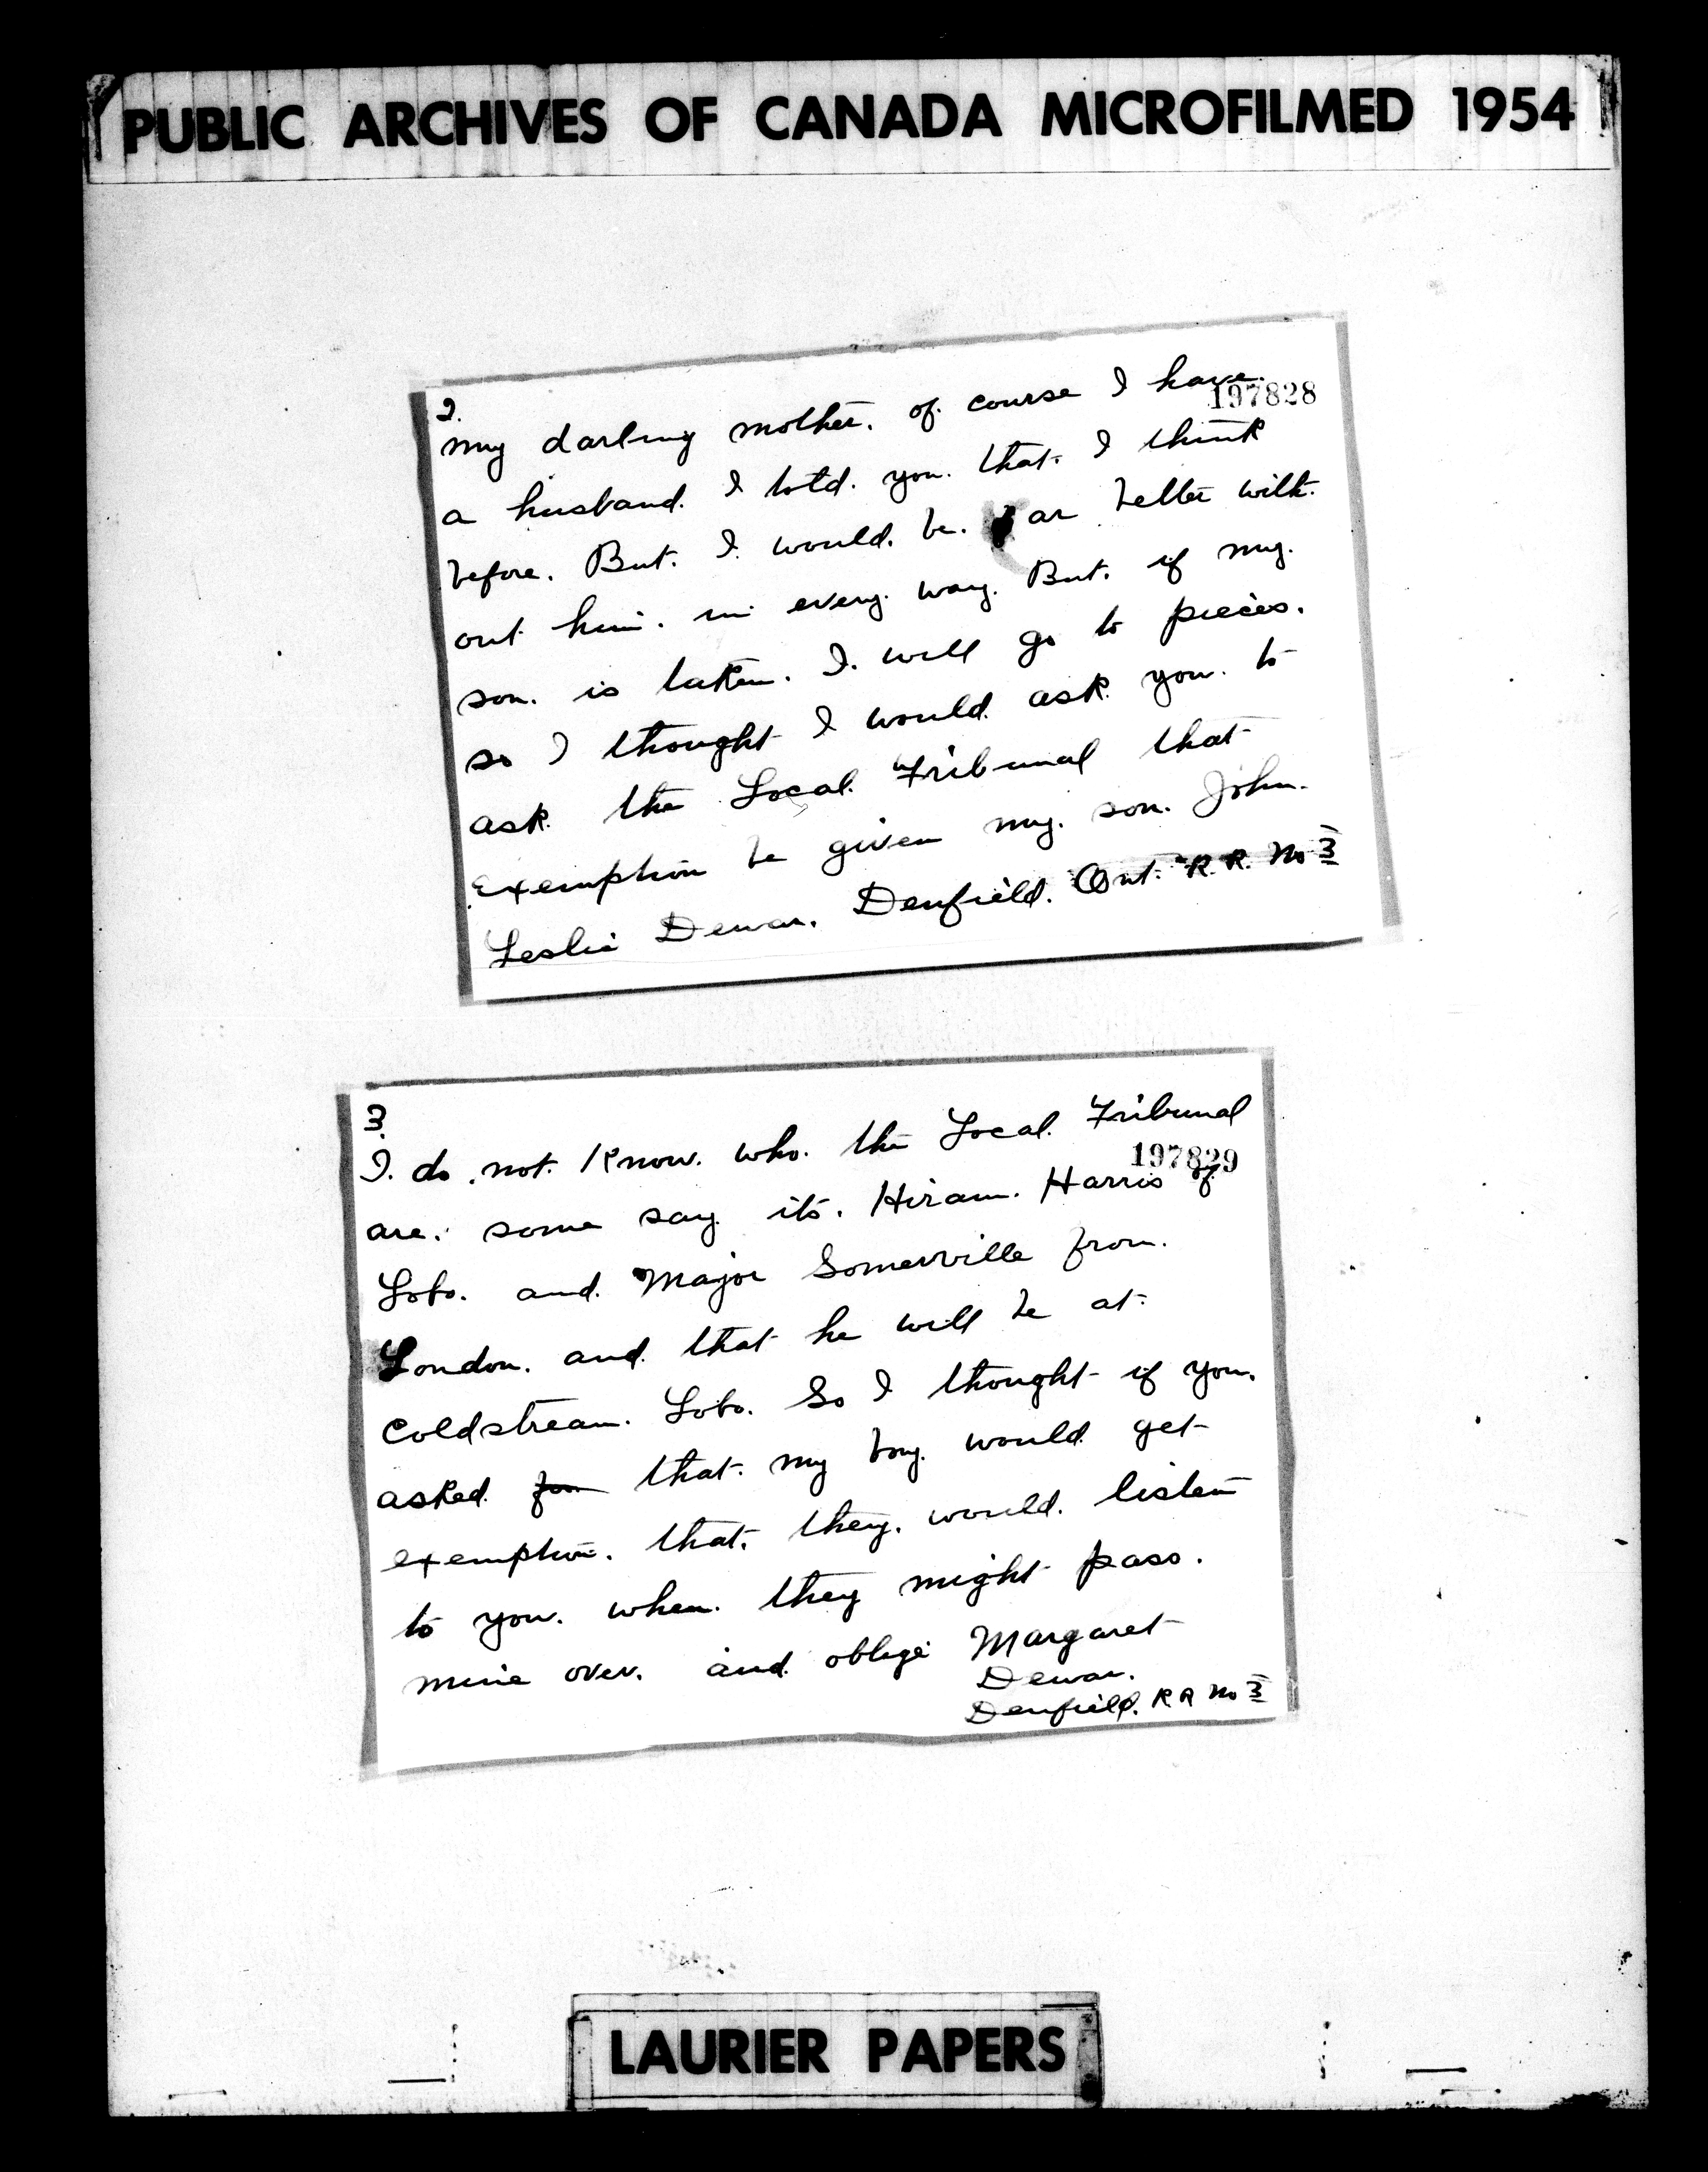 PUBLIC ARCHIVES OF CANADA MICROFILMED 1954
2.
197828
my darling mother. of course I have.
a husband. I told. you. that. I think
before. But. I would. be. far better with.
out him. in every. way. But. if my.
son. is taken. I. will go to pieces.
so I thought I would. ask. you. to
ask. the Local. Tribunal that
Exemption be given my. son. John.
Leslie Dewar. Denfield. Ont. R.R. No 3
3.
I. do. not. Know. who. the Local. Tribunal
197829
are. some say. its. Hiram. Harris of
Lobo. and. Major Somerville from.
London. and. that he will be at.
Coldstream. Lobo. So I thought if you.
asked. for that. my boy. would. get
exemption. that. they. would. listen
to you. when. they might pass.
mine over. and. oblige Margaret
Dewar.
Denfield. R R No 3
LAURIER PAPERS